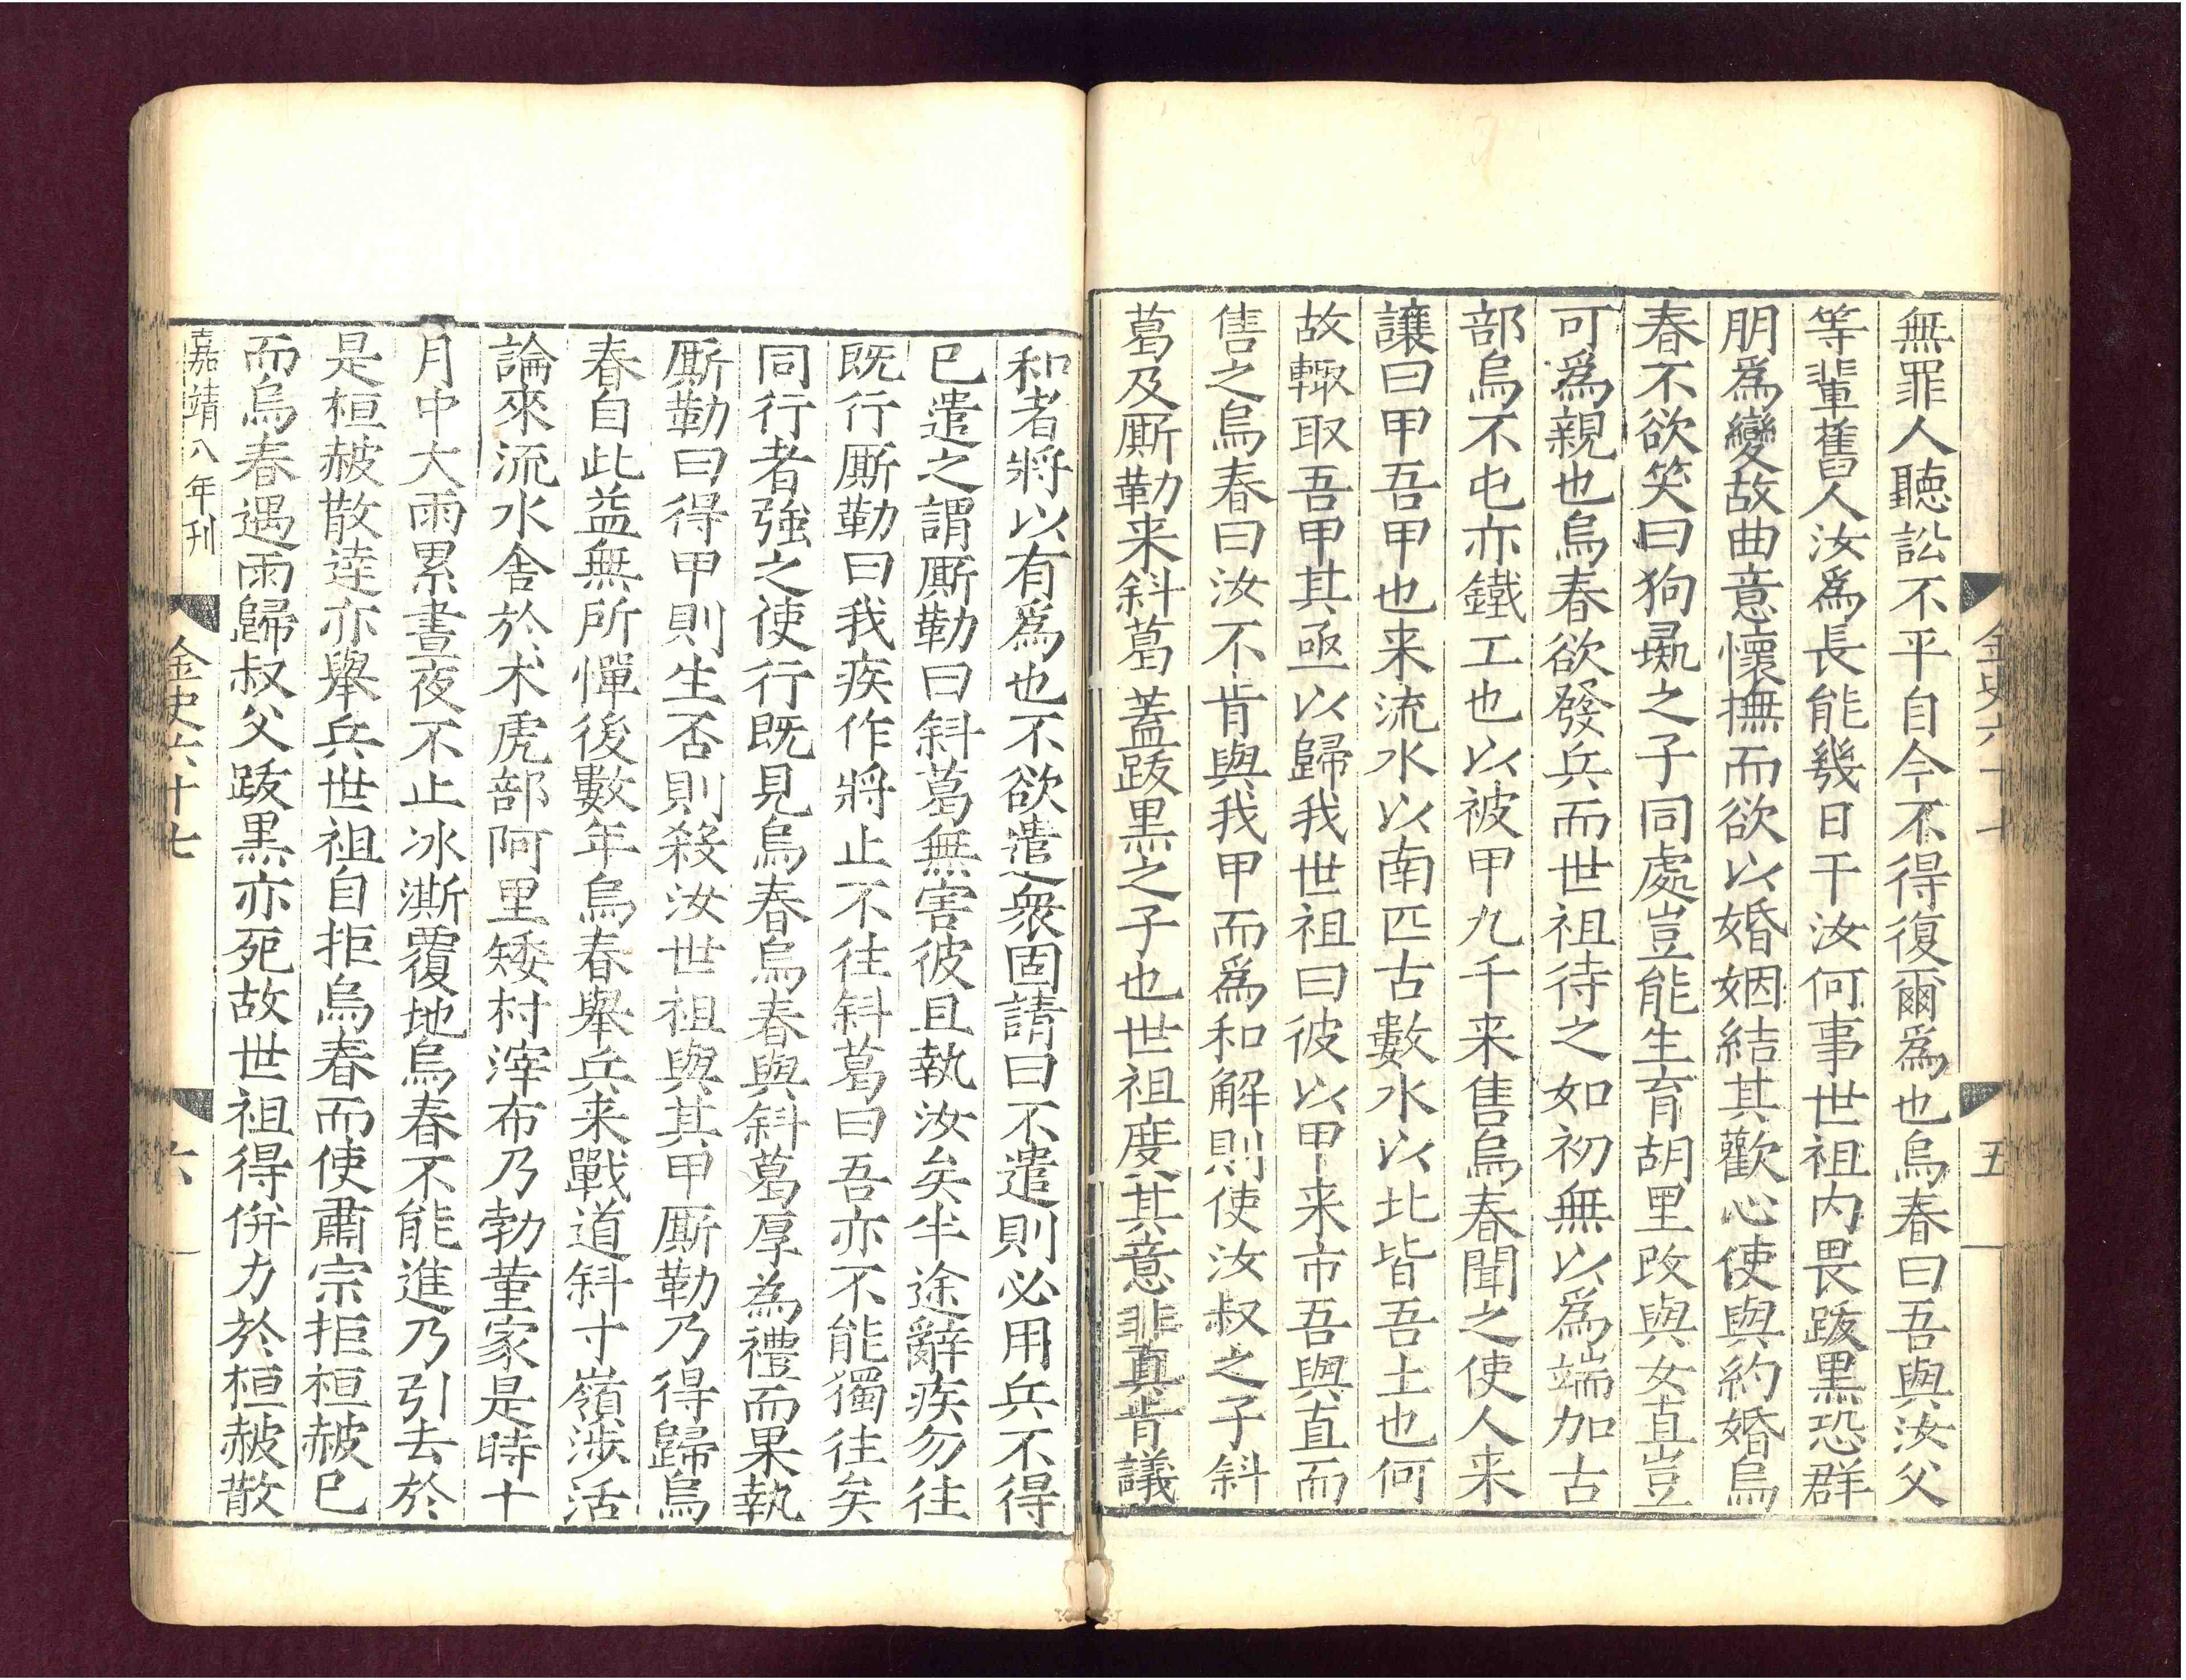 金史六十七
五
無罪人聽訟不平自今不得復爾爲也烏春曰吾與汝父
等輩舊人汝爲長能幾日干汝何事世祖内畏跋黑恐群
朋爲變故曲意懷撫而欲以婚姻結其歡心使與約婚烏
春不欲笑曰狗彘之子同處豈能生育胡里改與女直豈
可爲親也烏春欲發兵而世祖待之如初無以爲端加古
部烏不屯亦鐵工也以被甲九千来售烏春聞之使人来
讓曰甲吾甲也来流水以南匹古數水以北皆吾土也何
故輙取吾甲其亟以歸我世祖曰彼以甲来市吾與直而
售之烏春曰汝不肯與我甲而爲和解則使汝叔之子斜
葛及厮勒来斜葛蓋跋黒之子也世祖度其意非真肯議
和者將以有爲也不欲遣衆固請曰不遣則必用兵不得
已遣之謂厮勒曰斜葛無害彼且執汝矣半途辭疾勿往
既行厮勒曰我疾作將止不往斜葛曰吾亦不能獨往矣
同行者強之使行既見烏春烏春與斜葛厚為禮而果執
厮勒曰得甲則生否則殺汝世祖與其甲厮勒乃得歸烏
春自此益無所憚後數年烏春舉兵来戰道斜寸嶺渉活
論來流水舎於术虎部阿里矮村滓布乃勃菫家是時十
月中大雨累晝夜不止冰澌覆地烏春不能進乃引去於
是桓赧散逹亦舉兵世祖自拒烏春而使肅宗拒桓赧已
而烏春遇雨歸叔父跋黒亦死故世祖得併力於桓赧散
嘉靖八年刊
金史六十七
六